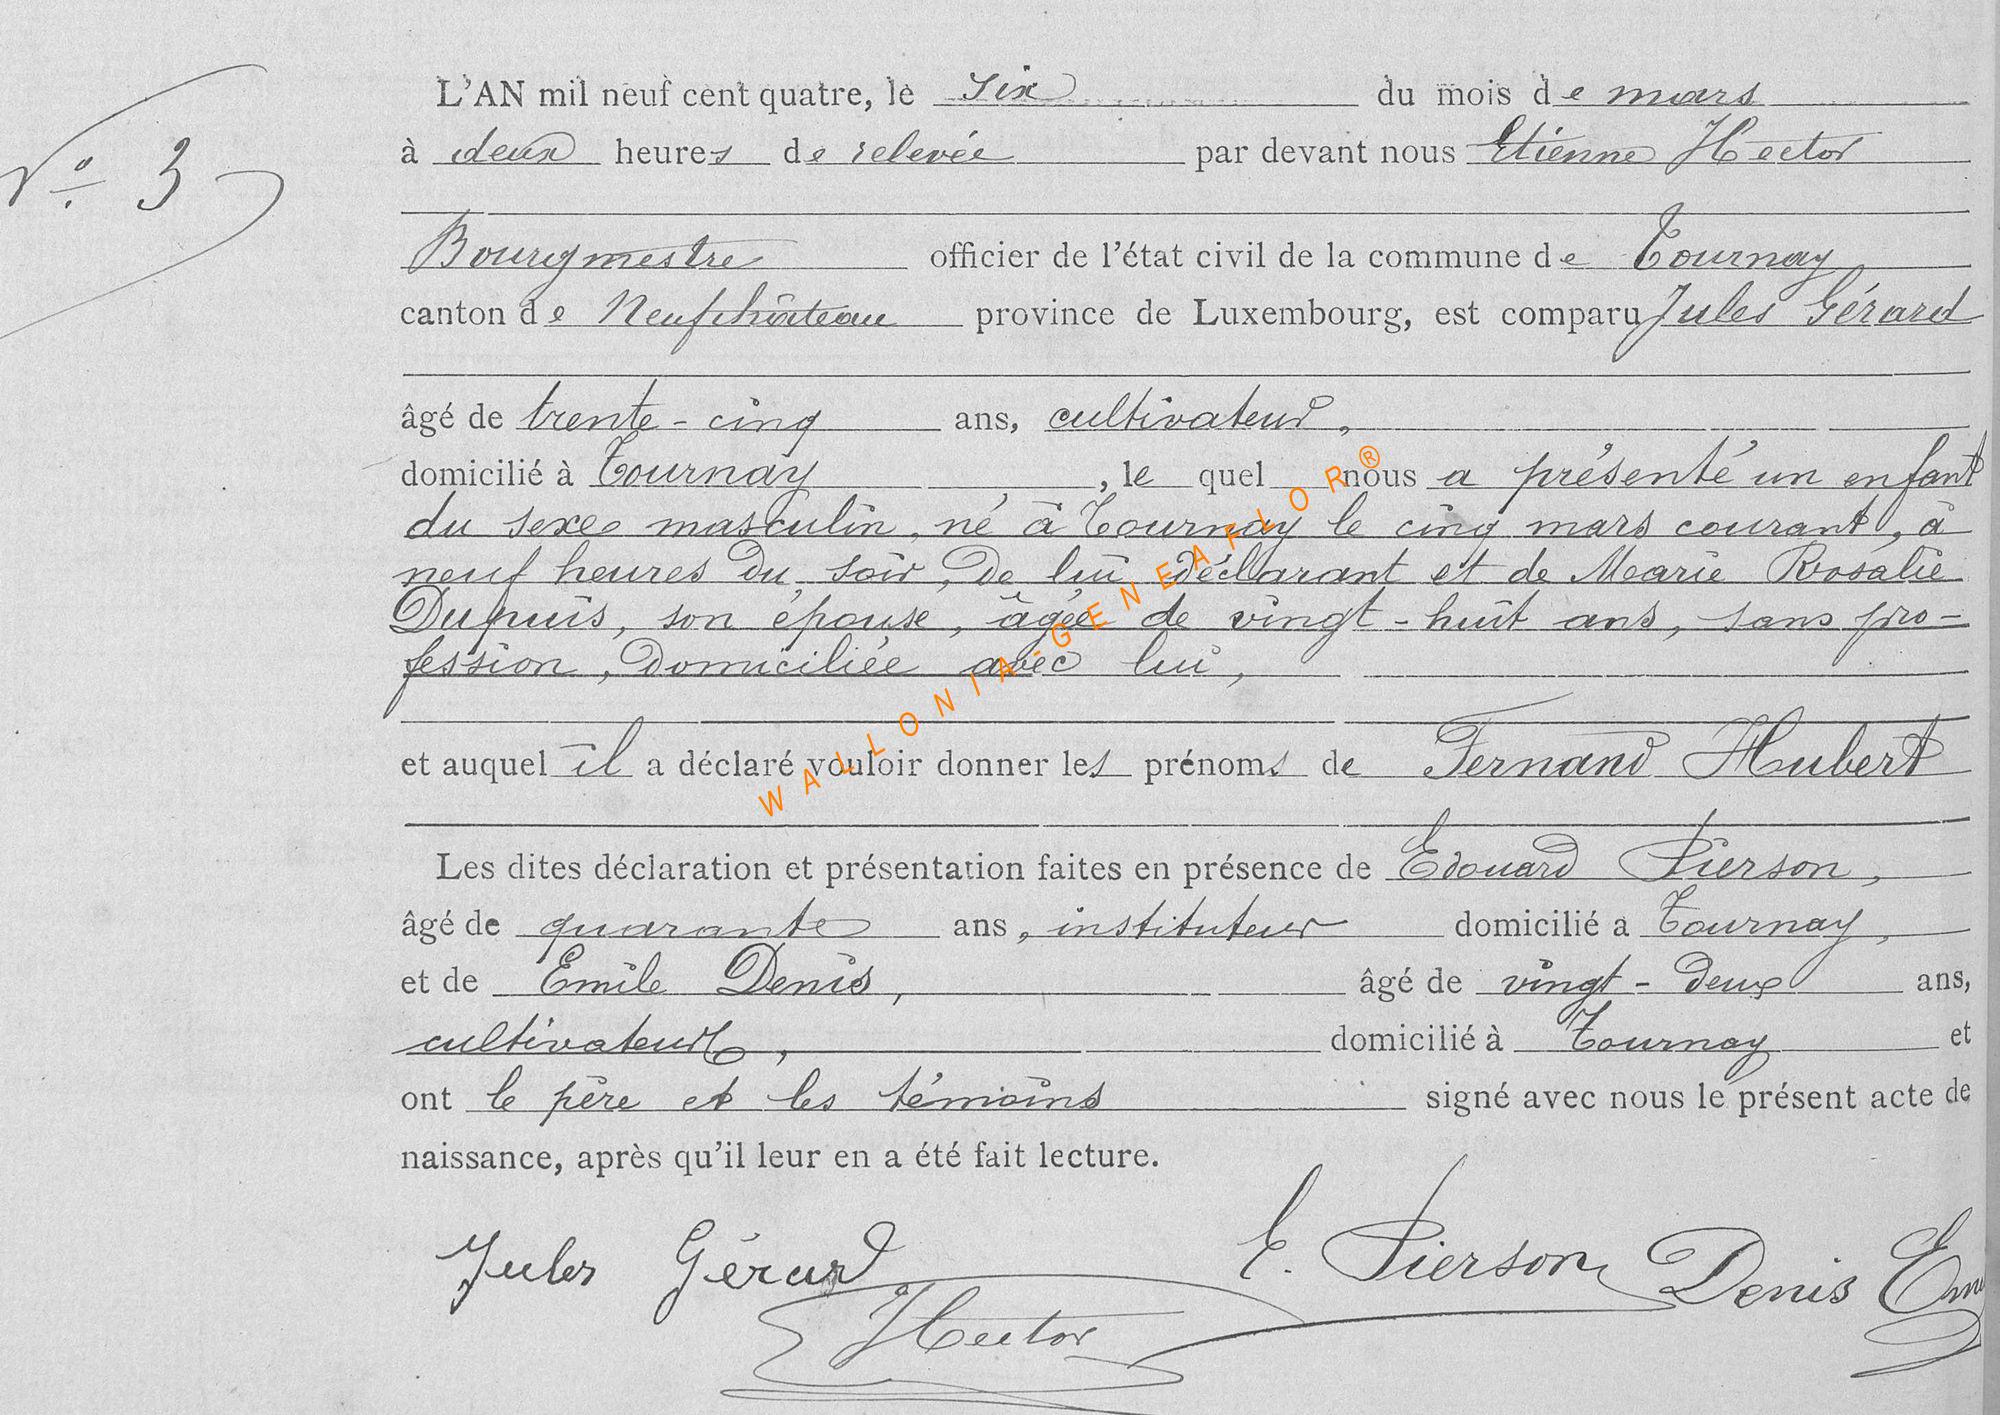 N° 3
L'AN mil neuf cent quatre, le six du mois de mars
à deux heures de relevée par devant nous Etienne Hector
Bourgmestre officier de l'état civil de la commune de Tournay
canton de Neufchâteau province de Luxembourg, est comparu Jules Gérard
âgé de trente-cinq ans, cultivateur,
domicilié à Tournay, le quel nous a présenté un enfant
du sexe masculin, né à Tournay le cinq mars courant, à
neuf heures du soir, de lui déclarant et de Marie Rosalie
Dupuis, son épouse, âgée de vingt-huit ans, sans pro-
fession, domiciliée avec lui,
et auquel il a déclaré vouloir donner les prénoms de Fernand Hubert
Les dites déclaration et présentation faites en présence de Edouard Pierson,
âgé de quarante ans, instituteur domicilié a Tournay,
et de Emile Denis, âgé de vingt-deux ans,
cultivateur, domicilié à Tournay et
ont le père et les témoins signé avec nous le présent acte de
naissance, après qu'il leur en a été fait lecture.
Jules Gérard E. Pierson Denis Em
Hector
WALLONIA-GENEAFLOR®